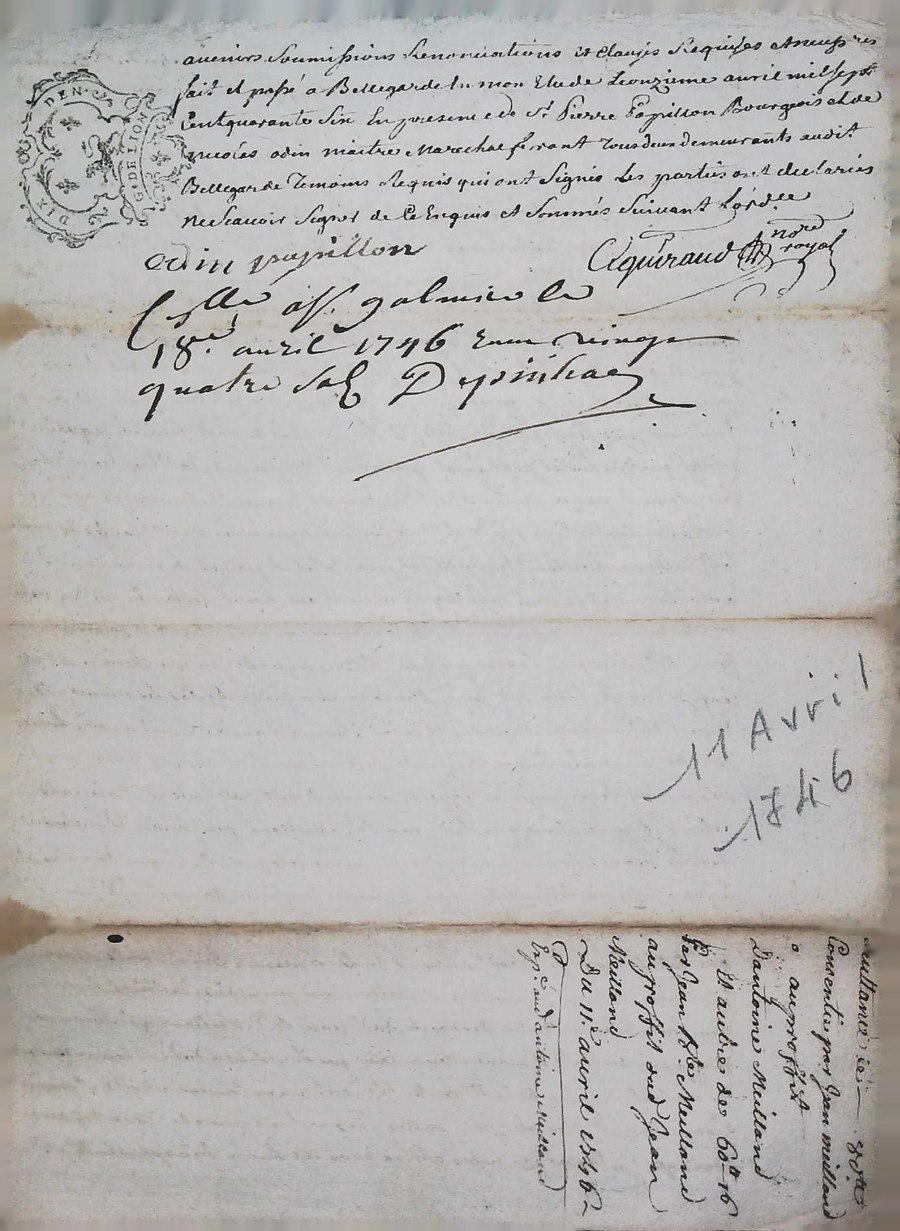 DIX DEN.
G. DE LION
avenirs Soumissions Renonciations et Clauses Requises
fait et passé a Bellegarde En mon Etude Le onzieme avril mil sept
Cent quarante Six En presence de Sr. Pierre Papillon Bourgeois et de
nicolas odin maitre Marechal ferrant Tous deux demeurants audit
Bellegarde Temoins Requis qui ont Signés Les parties ont declarées
ne Scavoir Signer de Ce Enquis et Sommés Suivant L'ord.ce
odin papillon
Cequiraud nore. royal
Conlle a St. galmier le
18e. avril 1746 Recu vingt
quatre Sols Depinhac
11 Avril
1746
quittance
Consentie par Jean meilland
au proffit
Dantoine Meilland
Et autre de 60tt 16
Par Jean Bte Meilland
au proffit dud Jean
Meilland
Du 11.e avril 1746
Exp.e aud antoine Meilland